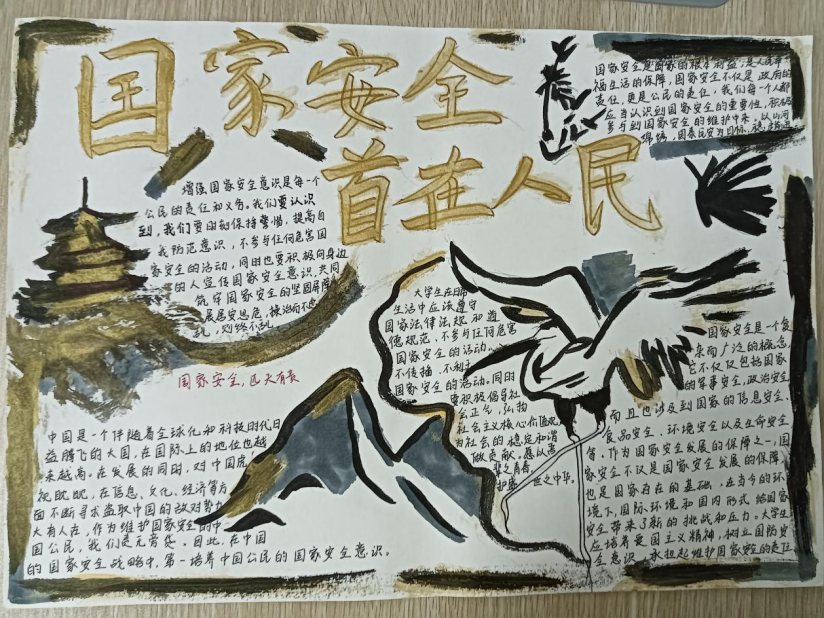 国家安全
首在人民
国家安全是国家的根本利益,是人民幸
福生活的保障,国家安全不仅是政府的
责任,更是公民的责任,我们每一个人都
应当认识到国家安全的重要性,积极
参与到国家安全的维护中来,以山河
锦绣,国泰民安为目标
增强国家安全意识是每一个
公民的责任和义务,我们要认识
到,我们要时刻保持警惕,提高自
我防范意识,不参与任何危害国
家安全的活动,同时也要积极向身边
的人宣传国家安全意识,共同
筑牢国家安全的坚固屏障
居安思危,
乱,则终不乱
国家安全,匹夫有责
大学生在日常
生活中应该遵守
国家法律法规和道
德规范,不参与任何危害
国家安全的活动,
不传播,不利于
国家安全的活动。同时
要积极倡导社
会正气,弘扬
社会主义核心价值观
为社会的稳定和谐
做贡献。愿以吾
辈之青春,
护盛世之中华。
国家安全是一个复
杂而广泛的概念,
它不仅仅包括国家
的军事安全,政治安全
而且也涉及到国家的信息安全、
食品安全、环境安全以及生命安全
等,作为国家安全发展的保障之一,国
家安全不仅是国家安全发展的保障,
也是国家存在的基础,在当今的环
境下,国际环境和国内形式给国家
安全带来了新的挑战和压力。大学生
应培养爱国主义精神,树立国防安
全意识,承担起维护国家安全的责任
中国是一个伴随着全球化和科技时代日
益腾飞的大国,在国际上的地位也越
来越高。在发展的同时,对中国虎
视眈眈,在信息、文化、经济等方
面不断寻求盗取中国的敌对势力
大有人在,作为维护国家安全的中
国公民,我们是无旁贷。因此,在中国
的国家安全战略中,第一培养中国公民的国家安全意识。